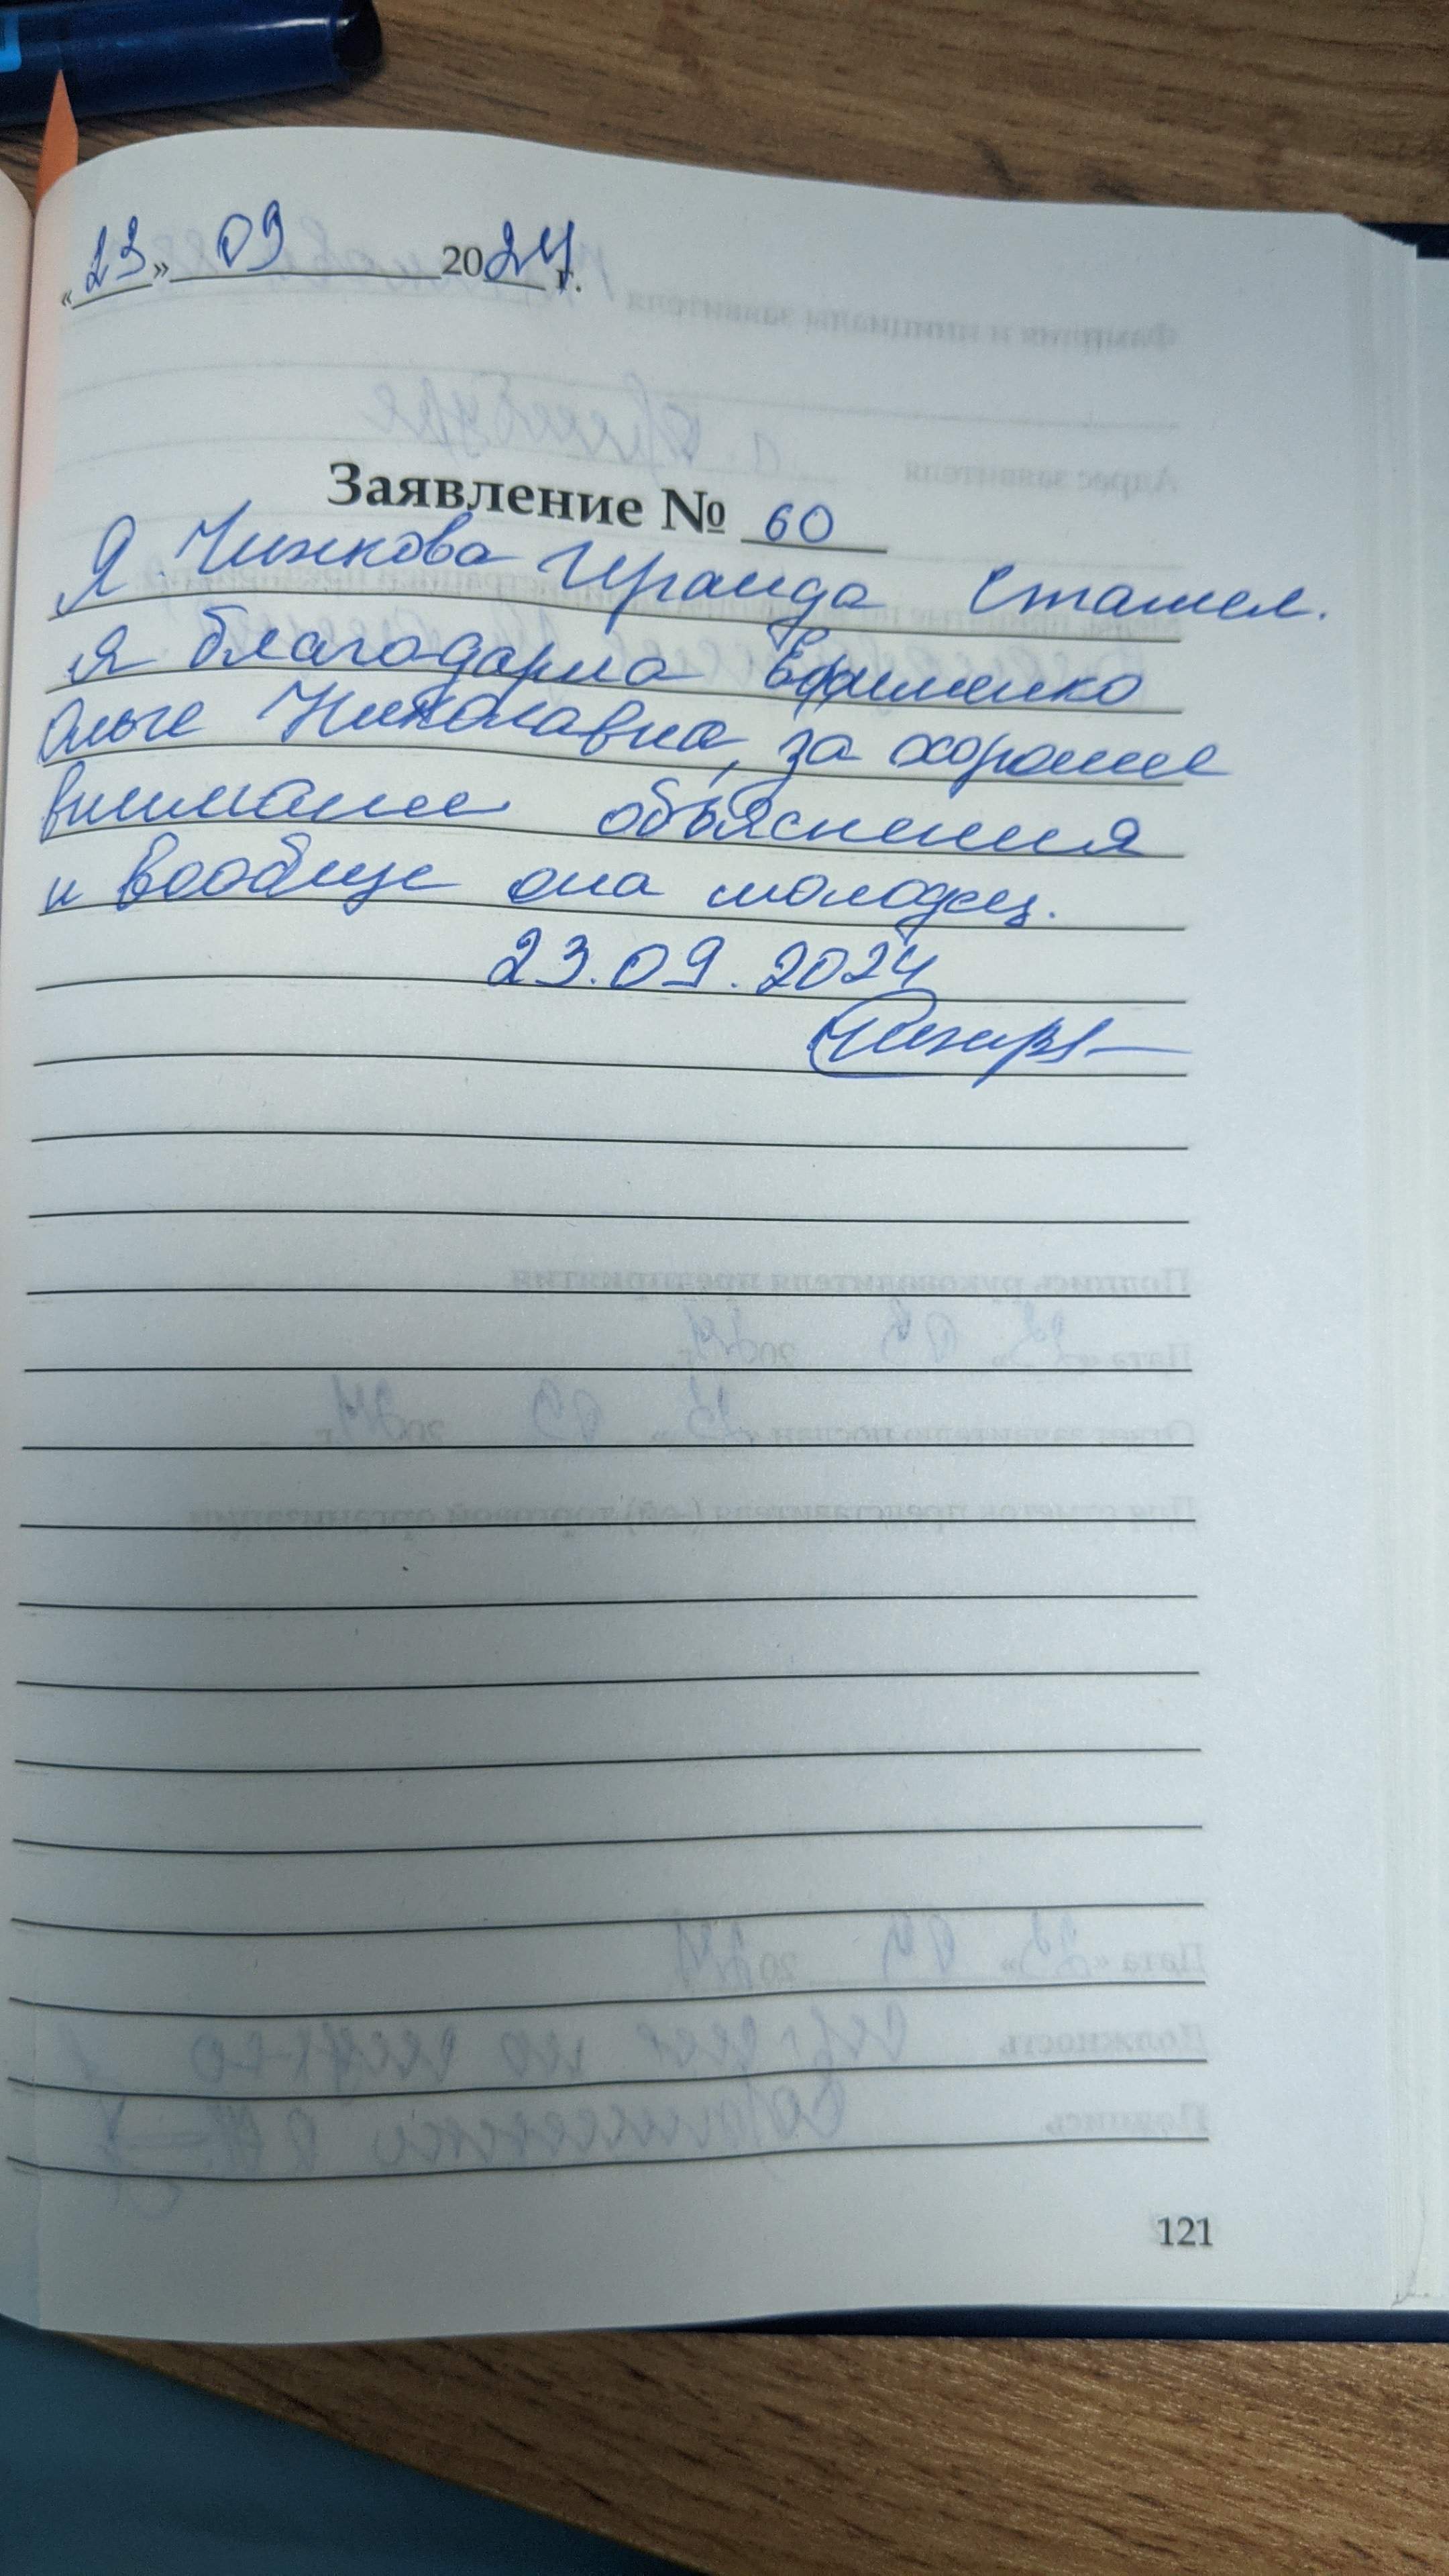 «23» 09 2024 г.
Заявление № 60
Я Чижкова Ираида Стамел.
я благодарна Ефименко
Ольге Николавна, за хорошие
внимание объяснения
и вообще она молодец.
23.09.2024
121